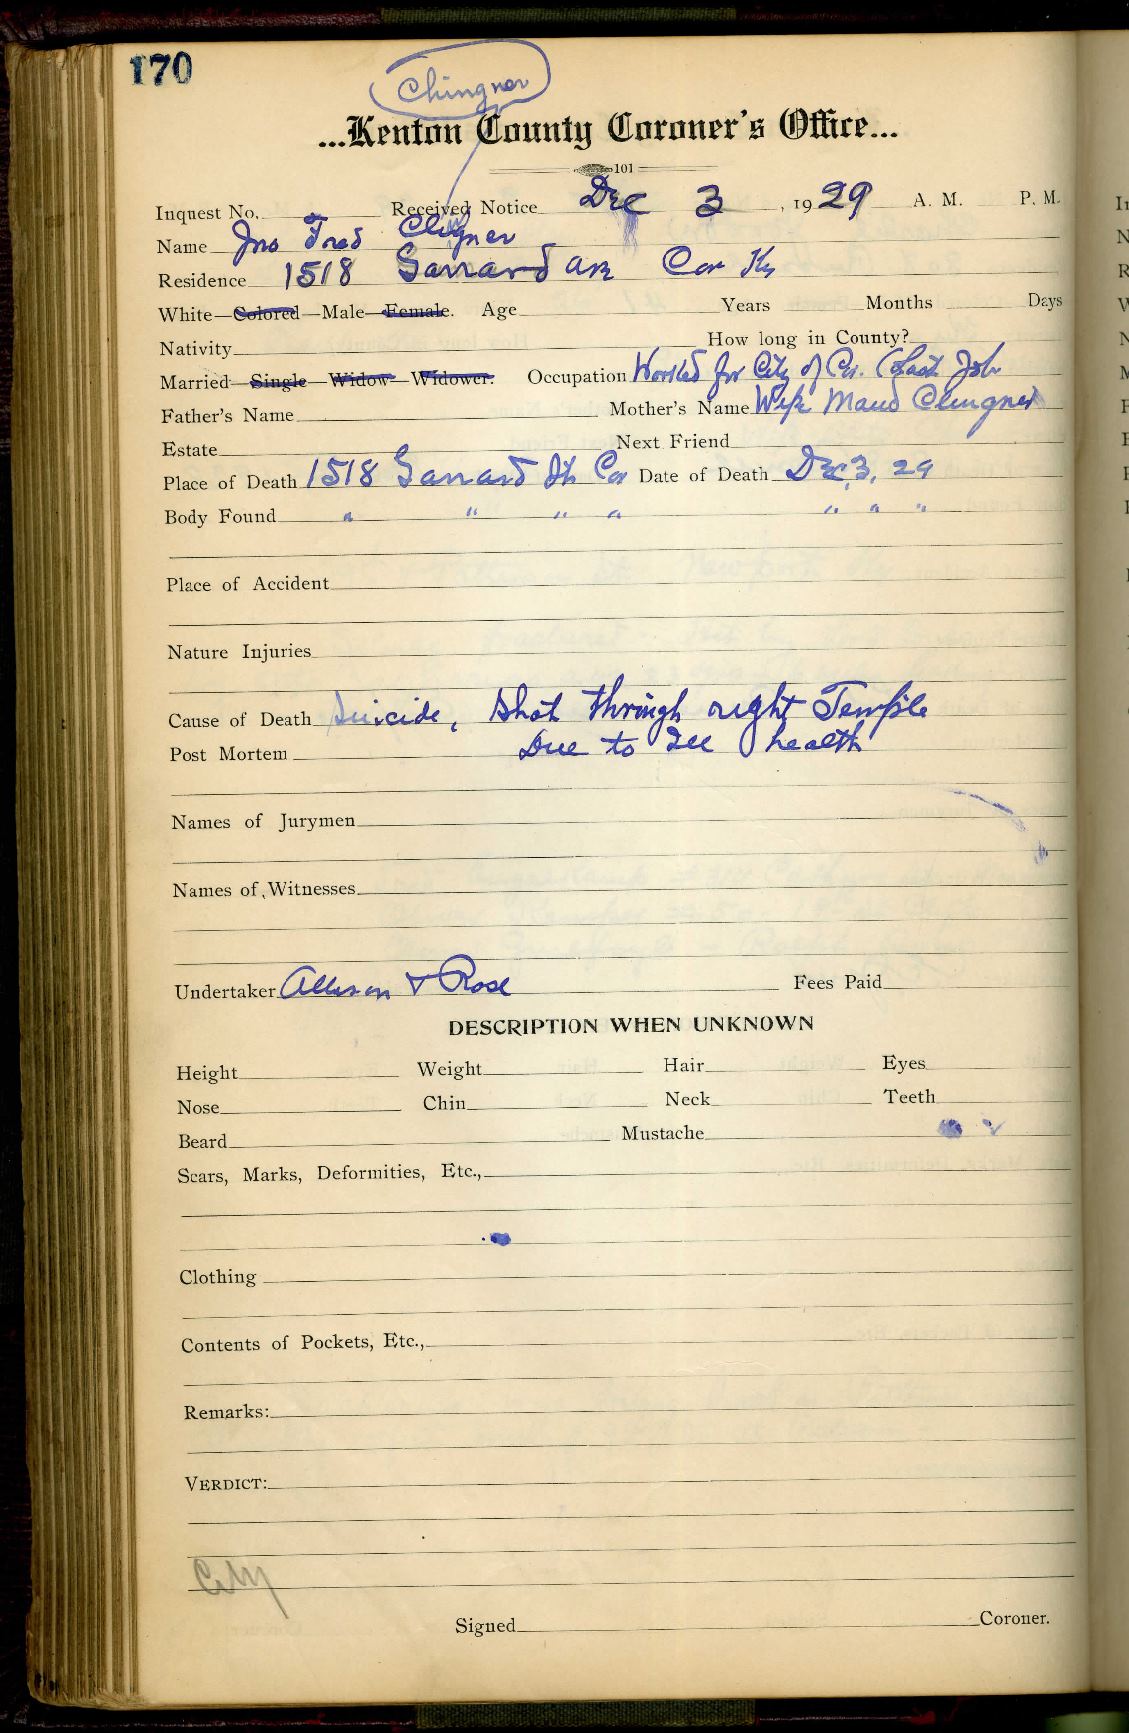 170
Clingner
...Kenton County Coroner's Office...
101
Inquest No. Received Notice Dec 3, 1929 A. M. P. M.
Name Jno Fred Clingner
Residence 1518 Garrard Ave Cov Ky
White—Colored—Male—Female. Age Years Months Days
Nativity How long in County?
Married—Single—Widow—Widower. Occupation Worked for City of Cov. (Last Job
Father's Name Mother's Name Wife Maud Clingner
Estate Next Friend
Place of Death 1518 Garrard St Cov Date of Death Dec, 3, 29
Body Found " " " " " " "
Place of Accident
Nature Injuries
Cause of Death Suicide, Shot through right Temple
Post Mortem Due to Ill health
Names of Jurymen
Names of Witnesses
Undertaker Allison & Rose Fees Paid
DESCRIPTION WHEN UNKNOWN
Height Weight Hair Eyes
Nose Chin Neck Teeth
Beard Mustache
Scars, Marks, Deformities, Etc.,
Clothing
Contents of Pockets, Etc.,
Remarks:
VERDICT:
City
Signed Coroner.